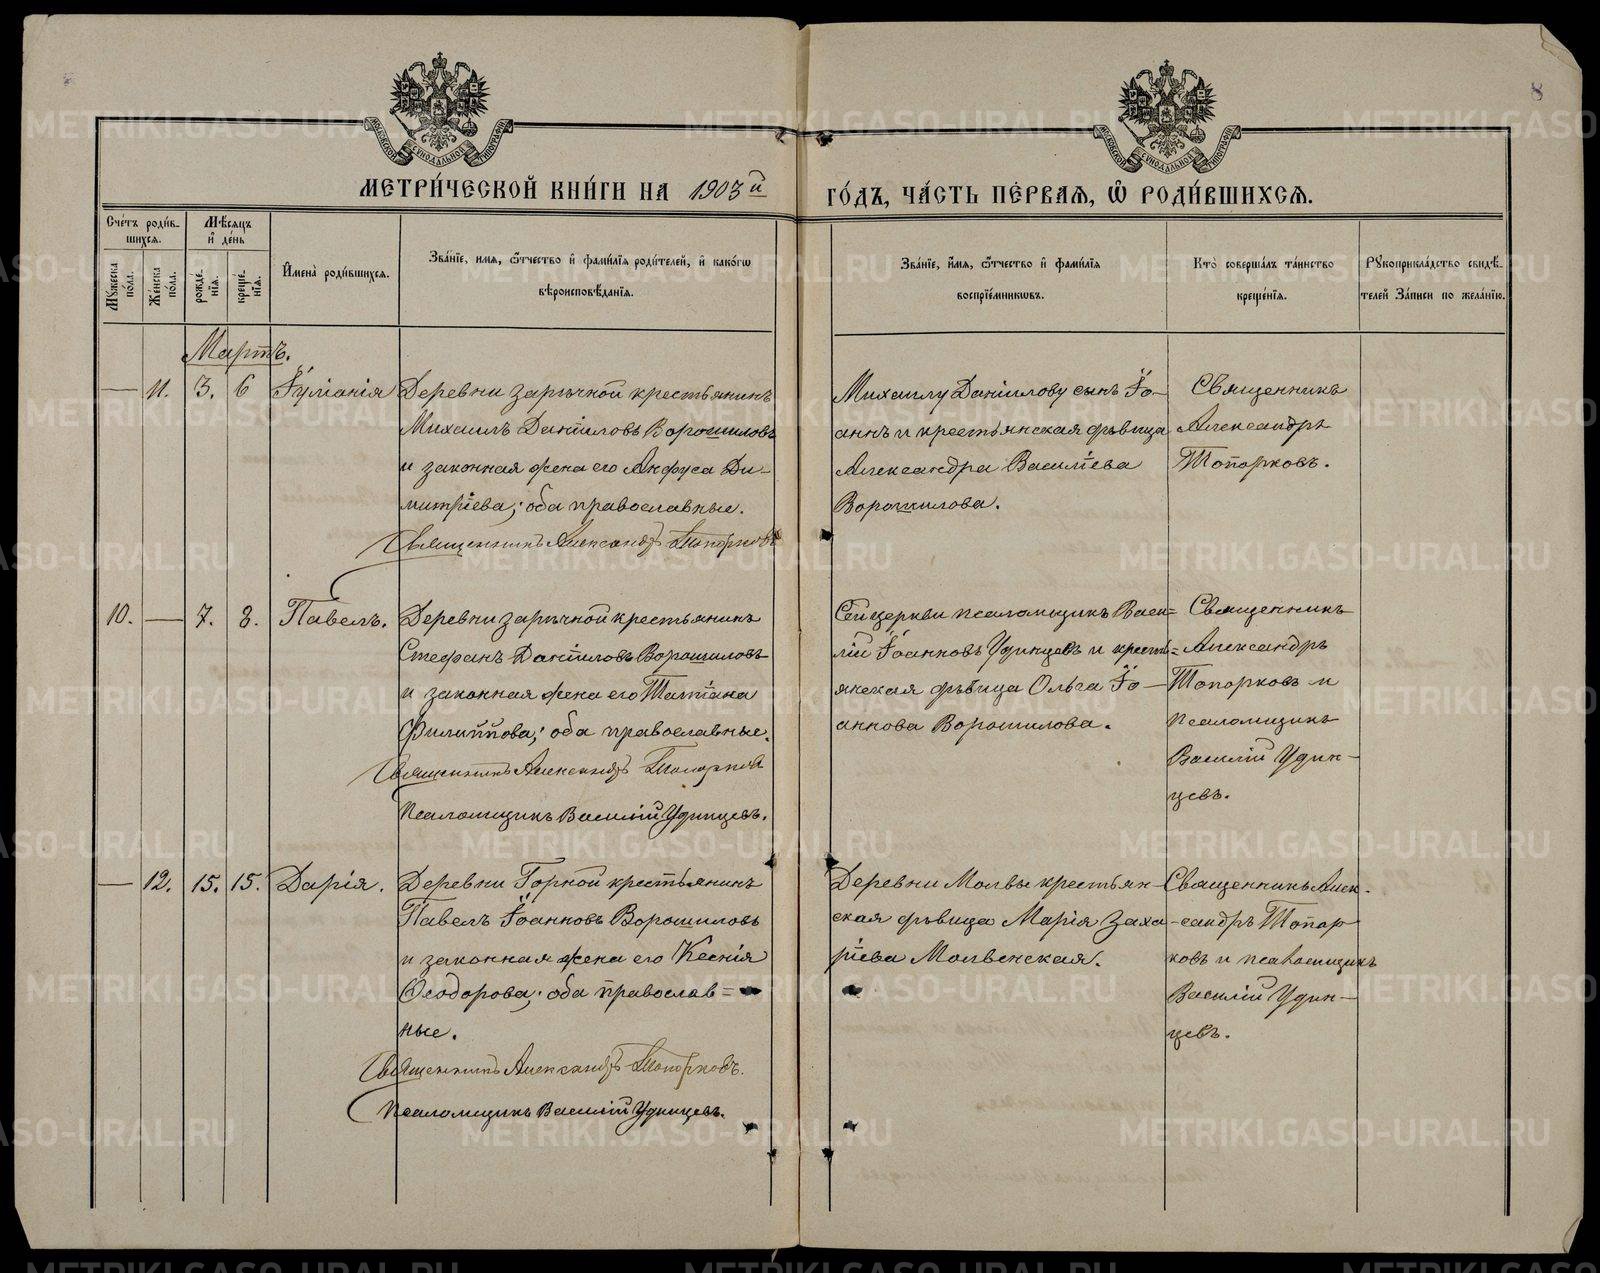 8
МОСКОВСКОЙ СѴНОДАЛЬНОЙ ТИПОГРАФІИ
МОСКОВСКОЙ СѴНОДАЛЬНОЙ ТИПОГРАФІИ
МЕТРИ́ЧЕСКОЙ КНИ́ГИ НА 1903й
ГО́ДЪ, ЧА́СТЬ ПЕ́РВАѦ, Ѽ РОДИ́ВШИХСѦ.
Сче́тъ роди́в-
шихсѧ.
Мѣ́сѧцъ
и҆ де́нь
Мꙋжеска
пола.
Же́нска
по́ла.
рожде́-
нїѧ.
креще́-
нїѧ.
И҆мена̀ роди́вшихсѧ.
Зва́нїе, и́мѧ, ѻ҆́тчество и҆ фамилїѧ роди́телей, и҆ како́гѡ
вѣроисповѣ́данїѧ.
Зва́нїе, и҆́мѧ, ѻ҆́тчество и҆ фами́лїѧ
воспрїе́мникѡвъ.
Кто̀ соверша́лъ та́инство
креще́нїѧ.
Рꙋкоприкла́дство свидѣ́-
телей за́писи по жела́нїю.
Мартъ.
— 11. 3. 6 Іуліанія
Деревни Заръчной крестьянинъ
Михаилъ Даніиловъ Ворошиловъ
и законная жена его Анфуса Ди-
митріева; оба православные.
Священникъ Александръ Топорковъ
Михаилу Даніилову сынъ Іо-
аннъ и крестьянская дѣвица
Александра Василіева
Ворошилова.
Священникъ
Александръ
Топорковъ.
10. — 7. 8. Павелъ.
Деревни Заръчной крестьянинъ
Стефанъ Даніиловъ Ворошиловъ
и законная жена его Татіана
Филиппова; оба православные.
Священникъ Александръ Топорков
Псаломщикъ Василій Удинцевъ.
Сей церкви псаломщикъ Васи=
лій Іоанновъ Удинцевъ и кресть=
янская дѣвица Ольга Іо-
аннова Ворошилова.
Священникъ
Александръ
Топорковъ и
псаломщикъ
Василій Удин-
цевъ.
— 12. 15. 15. Дарія.
Деревни Горной крестьянинъ
Павелъ Іоанновъ Ворошиловъ
и законная жена его Ксенія
Ѳеодорова; оба православ=
ные.
Священникъ Александръ Топорковъ.
Псаломщикъ Василій Удинцевъ.
Деревни Молвы крестьян-
ская дѣвица Марія Заха
ріева Молвенская.
Священникъ Алек-
сандръ Топор
ковъ и псаломщикъ
Василій Удин-
цевъ.